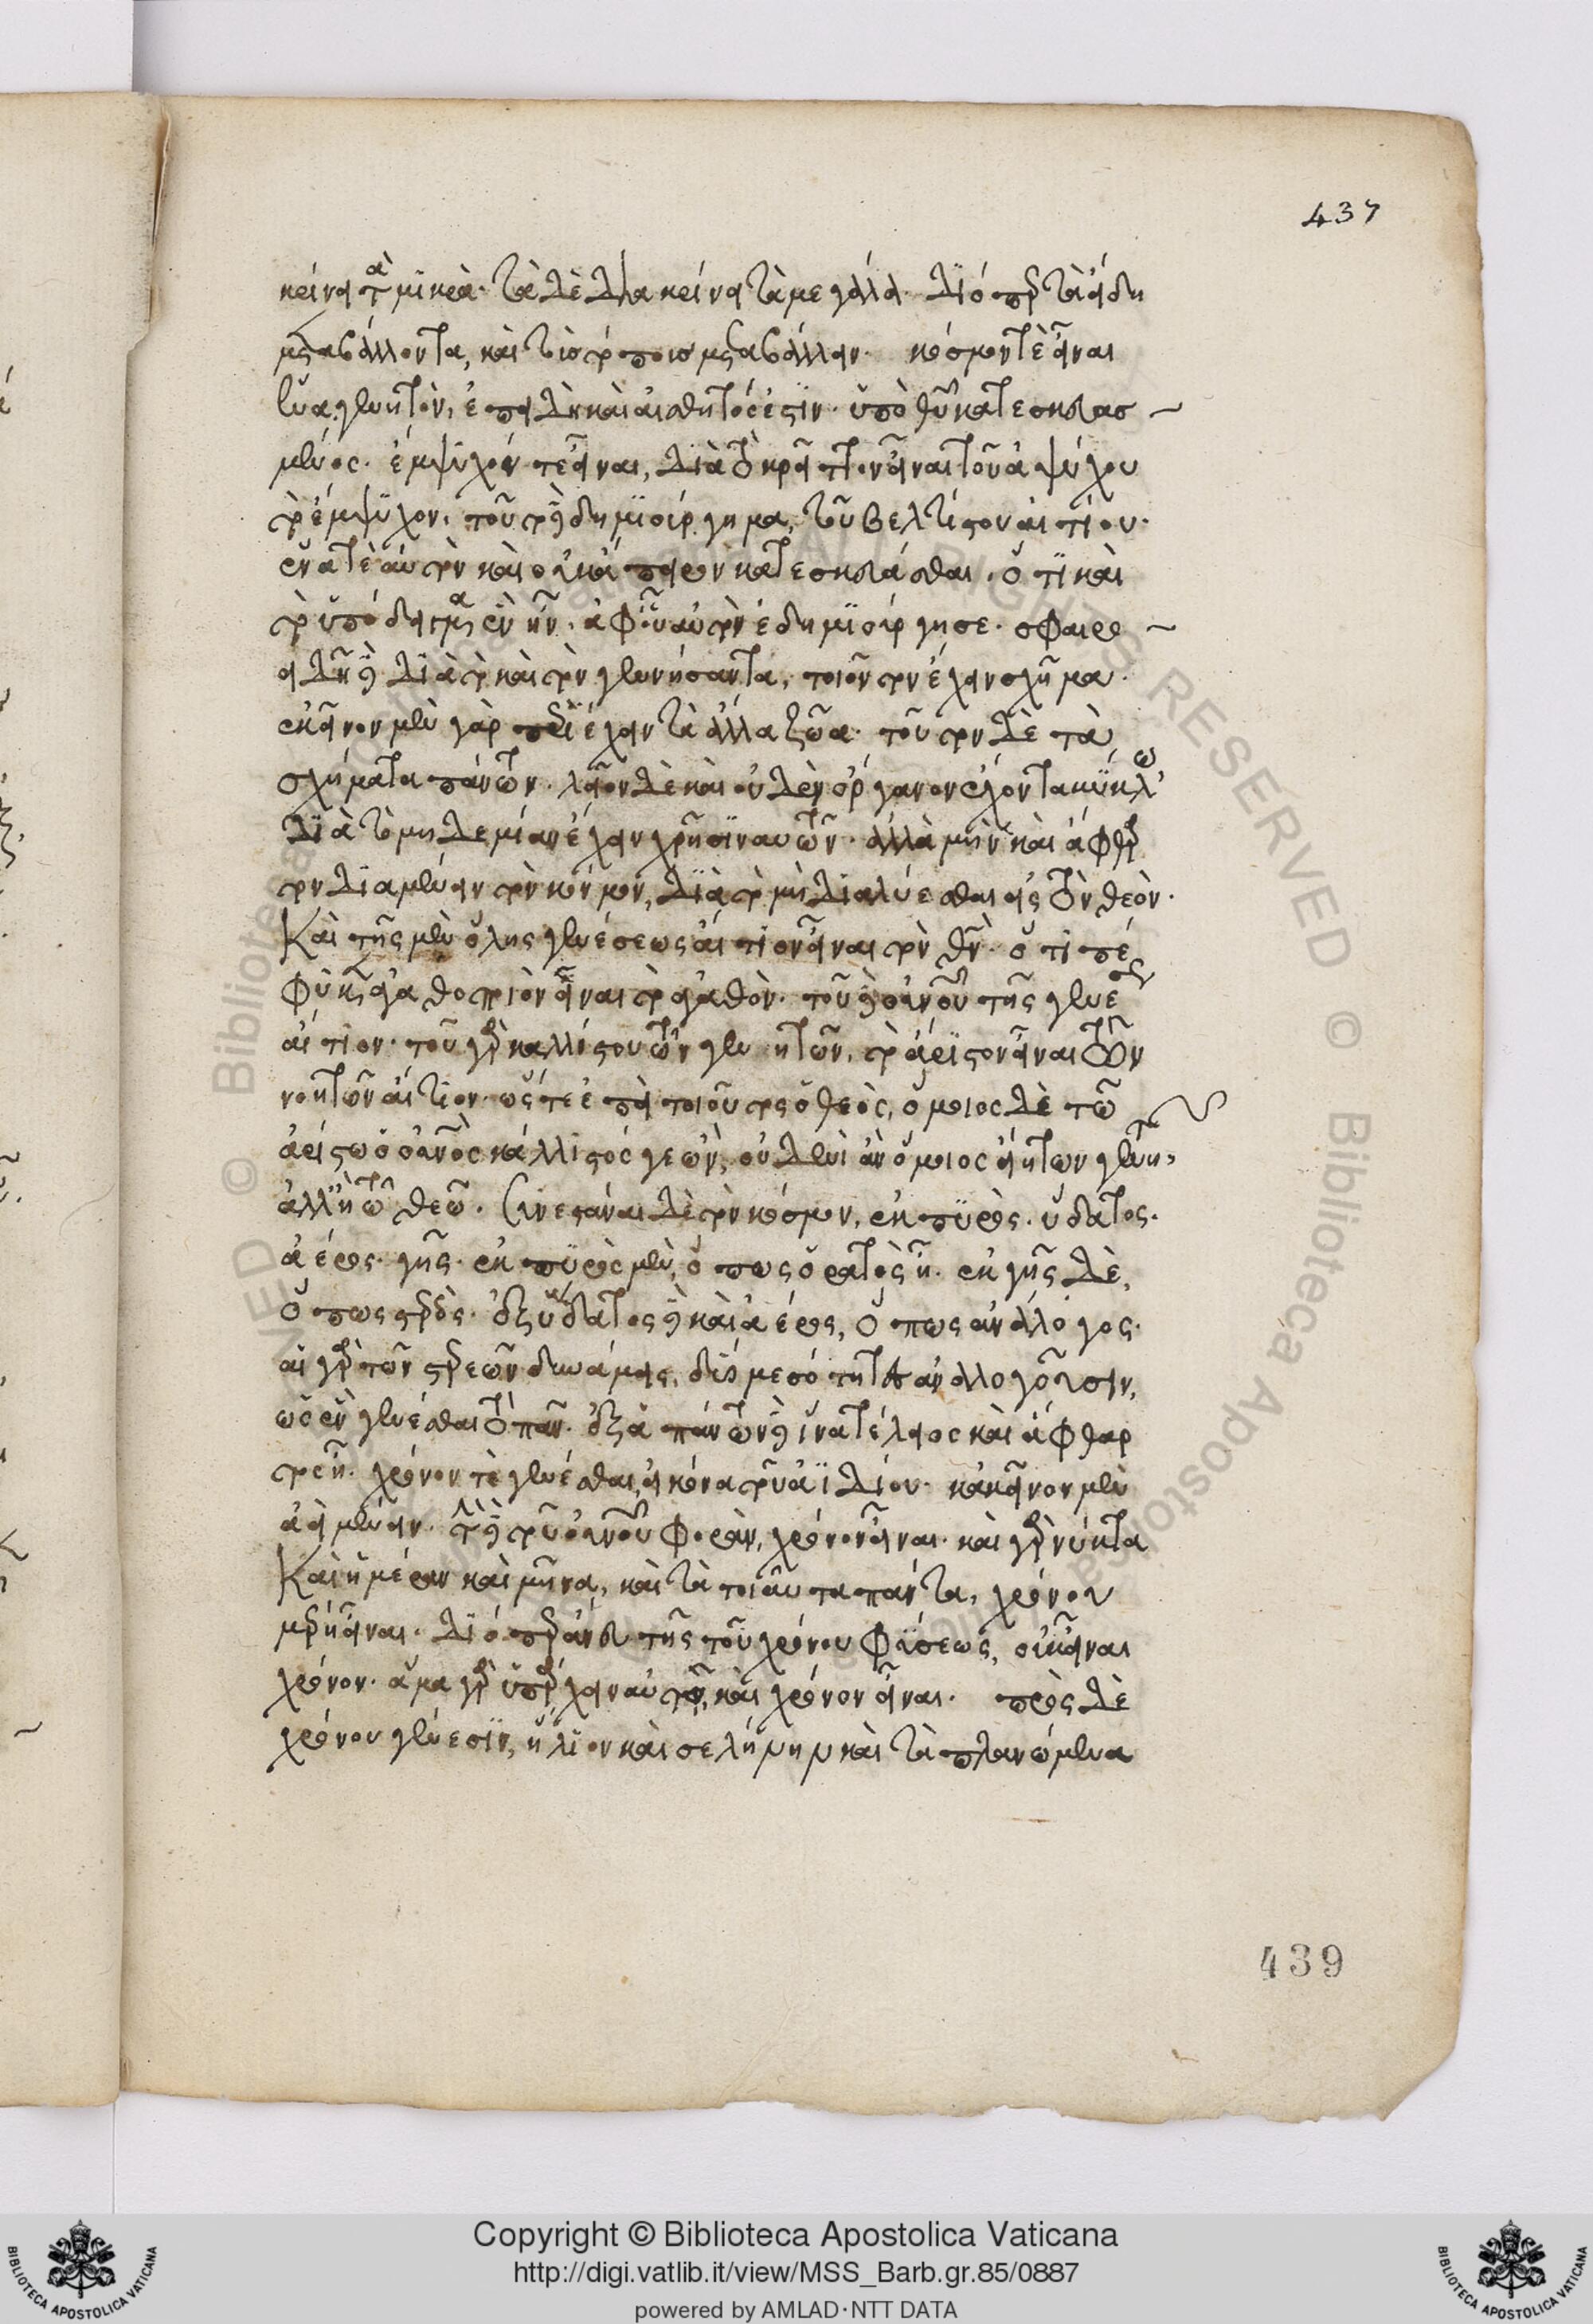 437
κρίνει τὰ μικρὰ· τὰ δὲ διακρίνει τὰ μεγάλα. διόπερ τὰ εἴδη
μεταβάλλοντα, καὶ τοὺς τόποις μεταβάλλειν. κόσμον τὲ εἶναι
ἕνα γενητὸν, ἐπειδὴ καὶ αἰσθητός ἐστιν. ὑπὸ θεοῦ κατεσκευασ
μένος. ἔμψυχόν τε εἶναι, διὰ τὸ κρεῖττον εἶναι τοῦ ἀψύχου
τὸ ἔμψυχον. τοῦτο δὲ δημιούργημα, τοῦ βελτίστου αἰτίου.
ἕνα τὲ αὐτὸν καὶ οὐκ ἄπειρον κατεσκευάσθαι. ὅτι καὶ
τὸ ὑπόδειγμα ἓν ἦν. ἀφ' οὗ αὐτὸν ἐδημιούργησε. σφαιρο
ειδῆ δὲ διὰ τὸ καὶ τὸν γεννήσαντα, τοιοῦτον ἔχειν σχῆμα.
ἐκεῖνον μὲν γὰρ περιέχειν τὰ ἄλλα ζῶα. τοῦτον δὲ τὰ
σχήματα πάντων. λεῖον δὲ καὶ οὐδὲν ὄργανον ἔχοντα κύκλω
διὰ τὸ μηδεμίαν ἔχειν χρῆσιν αὐτῶν. ἀλλὰ μὴν καὶ ἄφθαρ
τον διαμένειν τὸν κόσμον, διὰ τὸ μὴ διαλύεσθαι εἰς τὸν θεὸν.
Καὶ τῆς μὲν ὅλης γενέσεως αἴτιον εἶναι τὸν θεὸν. ὅτι πέ
φυκεν ἀγαθοποιὸν εἶναι τὸ ἀγαθὸν. τοῦ δὲ οὐρανοῦ τῆς γενέσεως
αἴτιον. τοῦ γὰρ καλλίστου τῶν γενητῶν, τὸ ἄριστον εἶναι τῶν
νοητῶν αἴτιον. ὥστε ἐπεὶ τοιοῦτος ὁ θεὸς, ὅμοιος δὲ τῶ
ἀρίστω ὁ οὐρανὸς κάλλιστός γε ὢν, οὐδενὶ ἂν ὅμοιος εἴη τῶν γενητῶν
ἀλλ' ἢ τῶ θεῶ. Συνεστάναι δὲ τὸν κόσμον, ἐκ πυρὸς. ὕδατος.
ἀέρος. γῆς. ἐκ πυρὸς μὲν, ὅπως ὁρατὸς ἦ. ἐκ γῆς δὲ,
ὅπως στερεὸς. ἐξ ὕδατος δὲ καὶ ἀέρος, ὅπως ἀνάλογος.
αἱ γὰρ τῶν στερεῶν δυνάμεις, δυσὶ μεσότησιν ἀναλογοῦσιν,
ὡς ἓν γενέσθαι τὸ πᾶν. ἐξ ἁπάντων δὲ ἵνα τέλειος καὶ ἄφθαρ
τος ἦ. χρόνον τὲ γενέσθαι, εἰκόνα τοῦ ἀϊδίου. κἀκεῖνον μὲν
ἀεὶ μένειν. τὴν δὲ τοῦ οὐρανοῦ φορὰν, χρόνον εἶναι. καὶ γὰρ νύκτα
Καὶ ἡμέραν καὶ μῆνα, καὶ τὰ τοιαῦτα πάντα, χρόνου
μέρη εἶναι. διόπερ ἄνευ τῆς τοῦ χρόνου φύσεως, οὐκ εἶναι
χρόνον. ἅμα γὰρ ὑπάρχειν αὐτὸν, καὶ χρόνον εἶναι. πρὸς δὲ
χρόνου γένεσιν, ἥλιον καὶ σελήνην καὶ τὰ πλανώμενα
439
Copyright © Biblioteca Apostolica Vaticana
http://digi.vatlib.it/view/MSS_Barb.gr.85/0887
powered by AMLAD·NTT DATA